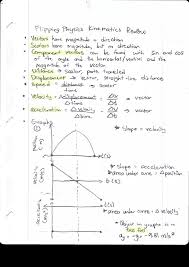 Flipping Physics Kinematics Review
• Vectors have magnitude + direction
• Scalars have magnitude, but no direction
• Component vectors can be found with sin and cos
of the angle and the horizontal/vertical and the
magnitude of the vector.
• Distance → scalar, path traveled
• Displacement → vector, straight-line distance
• Speed = distance / time → scalar
• Velocity = Δdisplacement / Δtime = → vector
• Acceleration = Δvelocity / Δtime = → vector
• Graphing
* slope = velocity
t (s)
* slope = acceleration
* area under curve =
t (s)
* area under curve = Δ velocity
* Object in graphs is in
free fall
-9.81 m/s²